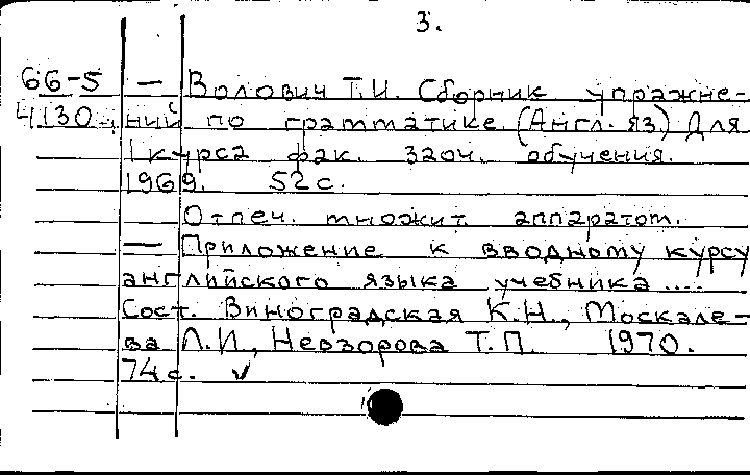 3.
66-5 — Волович Т.И. Сборник упражне-
4130 ний по грамматике (Англ. яз) Для
I курса фак. заоч. обучения.
1969. 52 с.
Отпеч. множит. аппаратом.
— Приложение к вводному курсу
английского языка учебника ....
Сост. Виноградская К.Н., Москале-
ва Л.И., Невзорова Т.П. 1970.
74 с. ✓